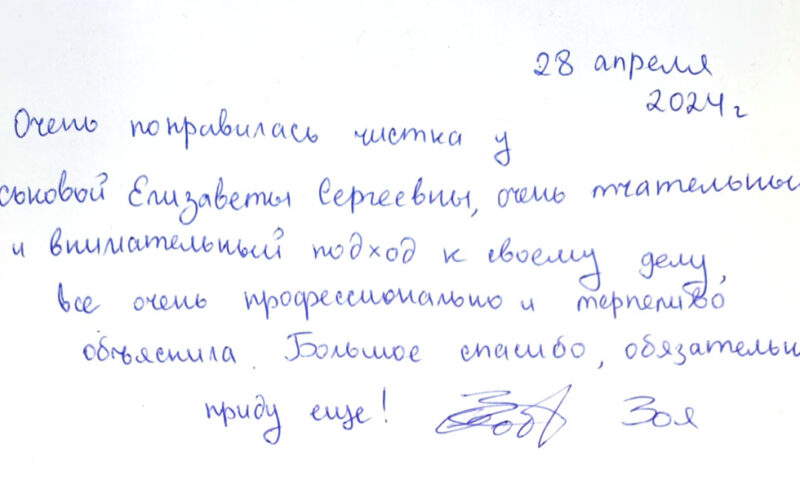 28 апреля
2024 г
Очень понравилась чистка у
ськовой Елизаветы Сергеевны, очень тчательны
и внимательный подход к своему делу,
все очень профессионально и терпеливо
объяснила. Большое спасибо, обязательн
приду еще! Зоя